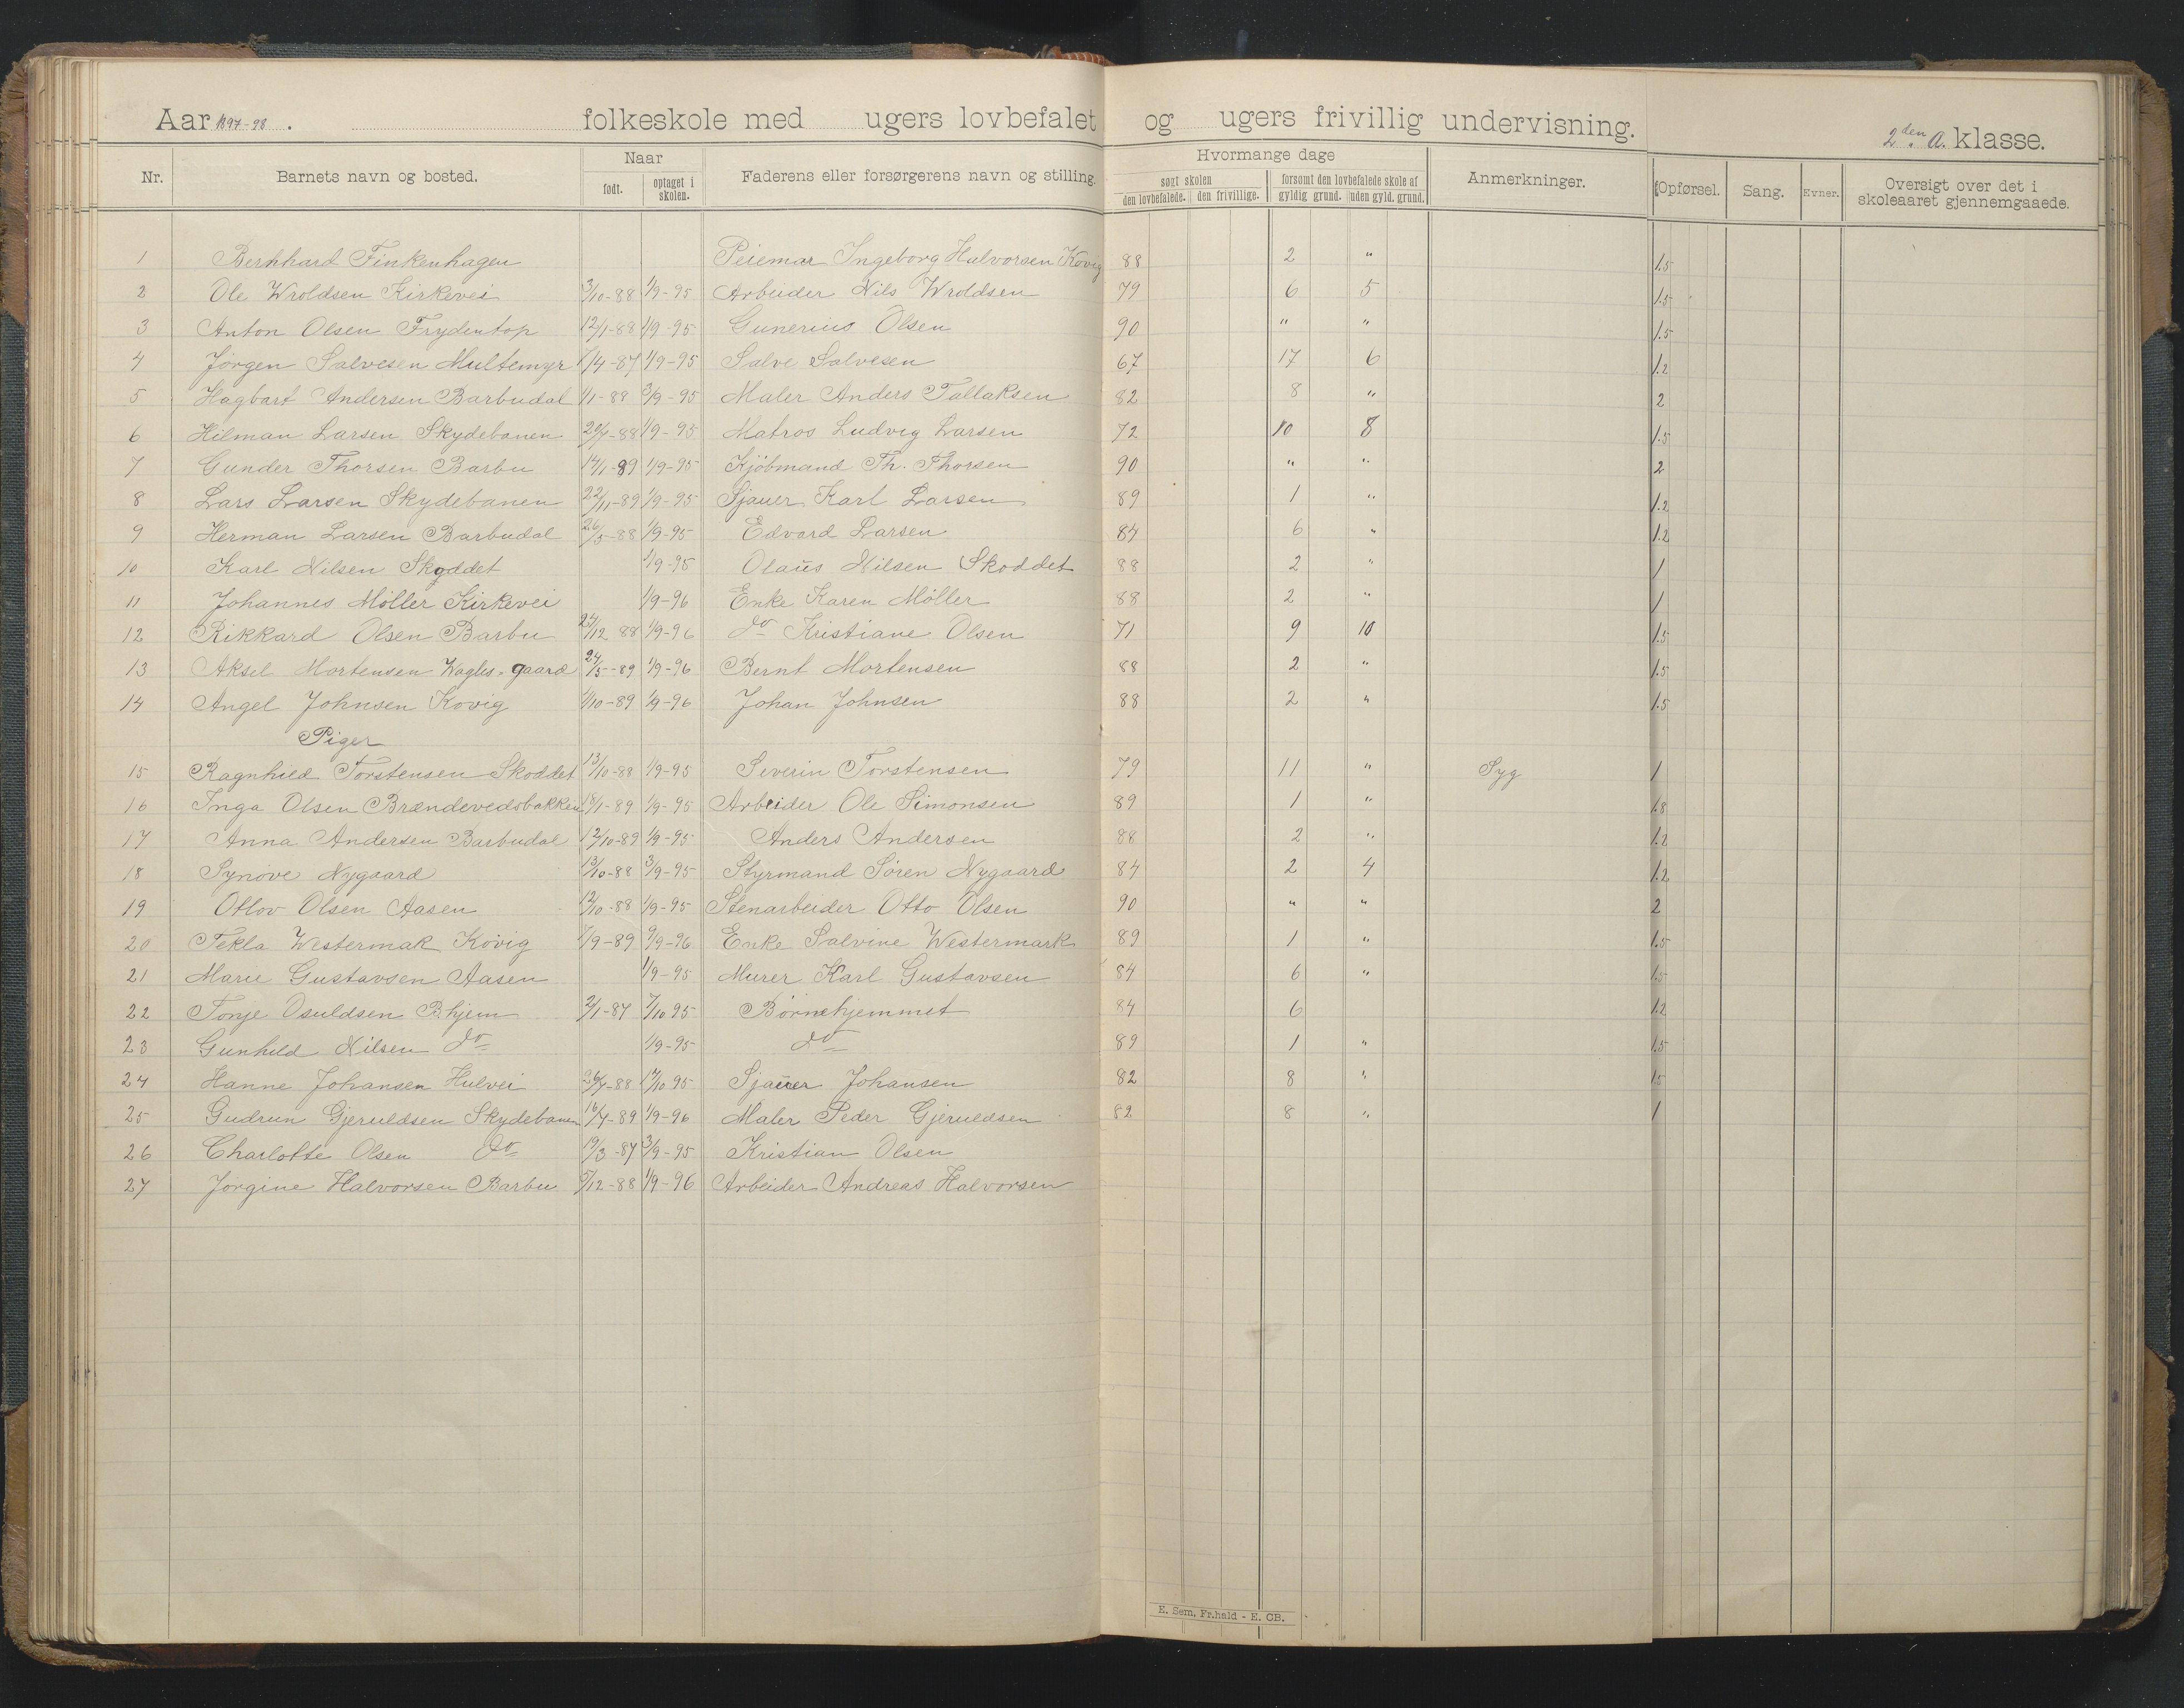 Aar 1897-98. folkeskole med ugers lovbefalet og ugers frivillig undervisning. 2den A. klasse.
Nr. Barnets navn og bosted. Naar født. optaget i skolen. Faderens eller forsørgerens navn og stilling. Hvormange dage søgt skolen den lovbefalede. den frivillige. forsømt den lovbefalede skole af gyldig grund. uden gyld. grund. Anmerkninger. Opførsel. Sang. Evner. Oversigt over det i skoleaaret gjennemgaaede.
1 Bernhard Finkenhagen Ingeborg Halvorsen Kovig 88 2 " 1.5
2 Ole Wroldsen Kirkevei 3/10-88 1/9-95 Arbeider Nils Wroldsen 79 6 5 1.5
3 Anton Olsen Frydentop 12/1-88 1/9-95 Gunerius Olsen 90 " " 1.5
4 Jörgen Salvesen Multemyr 1/4-87 1/9-95 Salve Salvesen 67 17 6 1.2
5 Hagbart Andersen Barbudal 1/1-89 3/9-95 Maler Anders Tallaksen 82 8 " 2
6 Hilman Larsen Skydebanen 20/7-88 1/9-95 Matros Ludvig Larsen 72 10 8 1.5
7 Gunder Thorsen Barbu 14/1-89 1/9-95 Kjöbmand Th. Thorsen 90 " " 2
8 Lars Larsen Skydebanen 22/11-89 1/9-95 Sjauer Karl Larsen 89 1 " 1.2
9 Herman Larsen Barbudal 26/5-88 1/9-95 Edvard Larsen 84 6 " 1.2
10 Karl Nilsen Skoddet 1/9-95 Olaus Nilsen Skoddet 88 2 " 1
11 Johannes Möller Kirkevei 1/9-96 Enke Karen Möller 88 2 " 1
12 Rikkard Olsen Barbu 24/12 88 1/9-96 do Kristiane Olsen 71 9 10 1.5
13 Aksel Mortensen gaard 24/5-89 1/9-96 Bernt Mortensen 88 2 " 1.5
14 Angel Johnsen Kovig 1/10-89 1/9-96 Johan Johnsen 88 2 " 1.5
Piger
15 Ragnhild Torstensen Skoddet 13/10-88 1/9-95 Severin Torstensen 79 11 " Syg 1
16 Inga Olsen Brændevedsbakken 18/1-89 1/9-95 Arbeider Ole Simonsen 89 1 " 1.8
17 Anna Andersen Barbudal 12/10-89 1/9-95 Anders Andersen 88 2 " 1.2
18 Synöve Nygaard 13/10-88 3/9-95 Styrmand Sören Nygaard 84 2 4 1.2
19 Otlov Olsen Aasen 12/10-88 1/9-95 Stenarbeider Otto Olsen 90 " " 2
20 Tekla Westermak Kövig 7/9-89 9/9-96 Enke Salvine Westermark 89 1 " 1.5
21 Marie Gustavsen Aasen 1/9-95 Murer Karl Gustavsen 84 6 " 1.5
22 Tonje Osuldsen B.hjem 2/1-87 7/10 95 Börnehjemmet 84 6 1.2
23 Gunhild Nilsen do 1/9-95 do 89 1 " 1.5
24 Hanne Johansen Hulvei 26/7-88 17/10 95 Sjauer Johansen 82 8 " 1.5
25 Gudrun Gjeruldsen Skydebanen 16/7-89 1/9-96 Maler Peder Gjeruldsen 82 8 " 1
26 Charlotte Olsen do 19/3-87 3/9-95 Kristian Olsen
27 Jörgine Halvorsen Barbu 5/12-88 1/9-96 Arbeider Andreas Halvorsen
E. Sem, Fr.hald - E. CB.